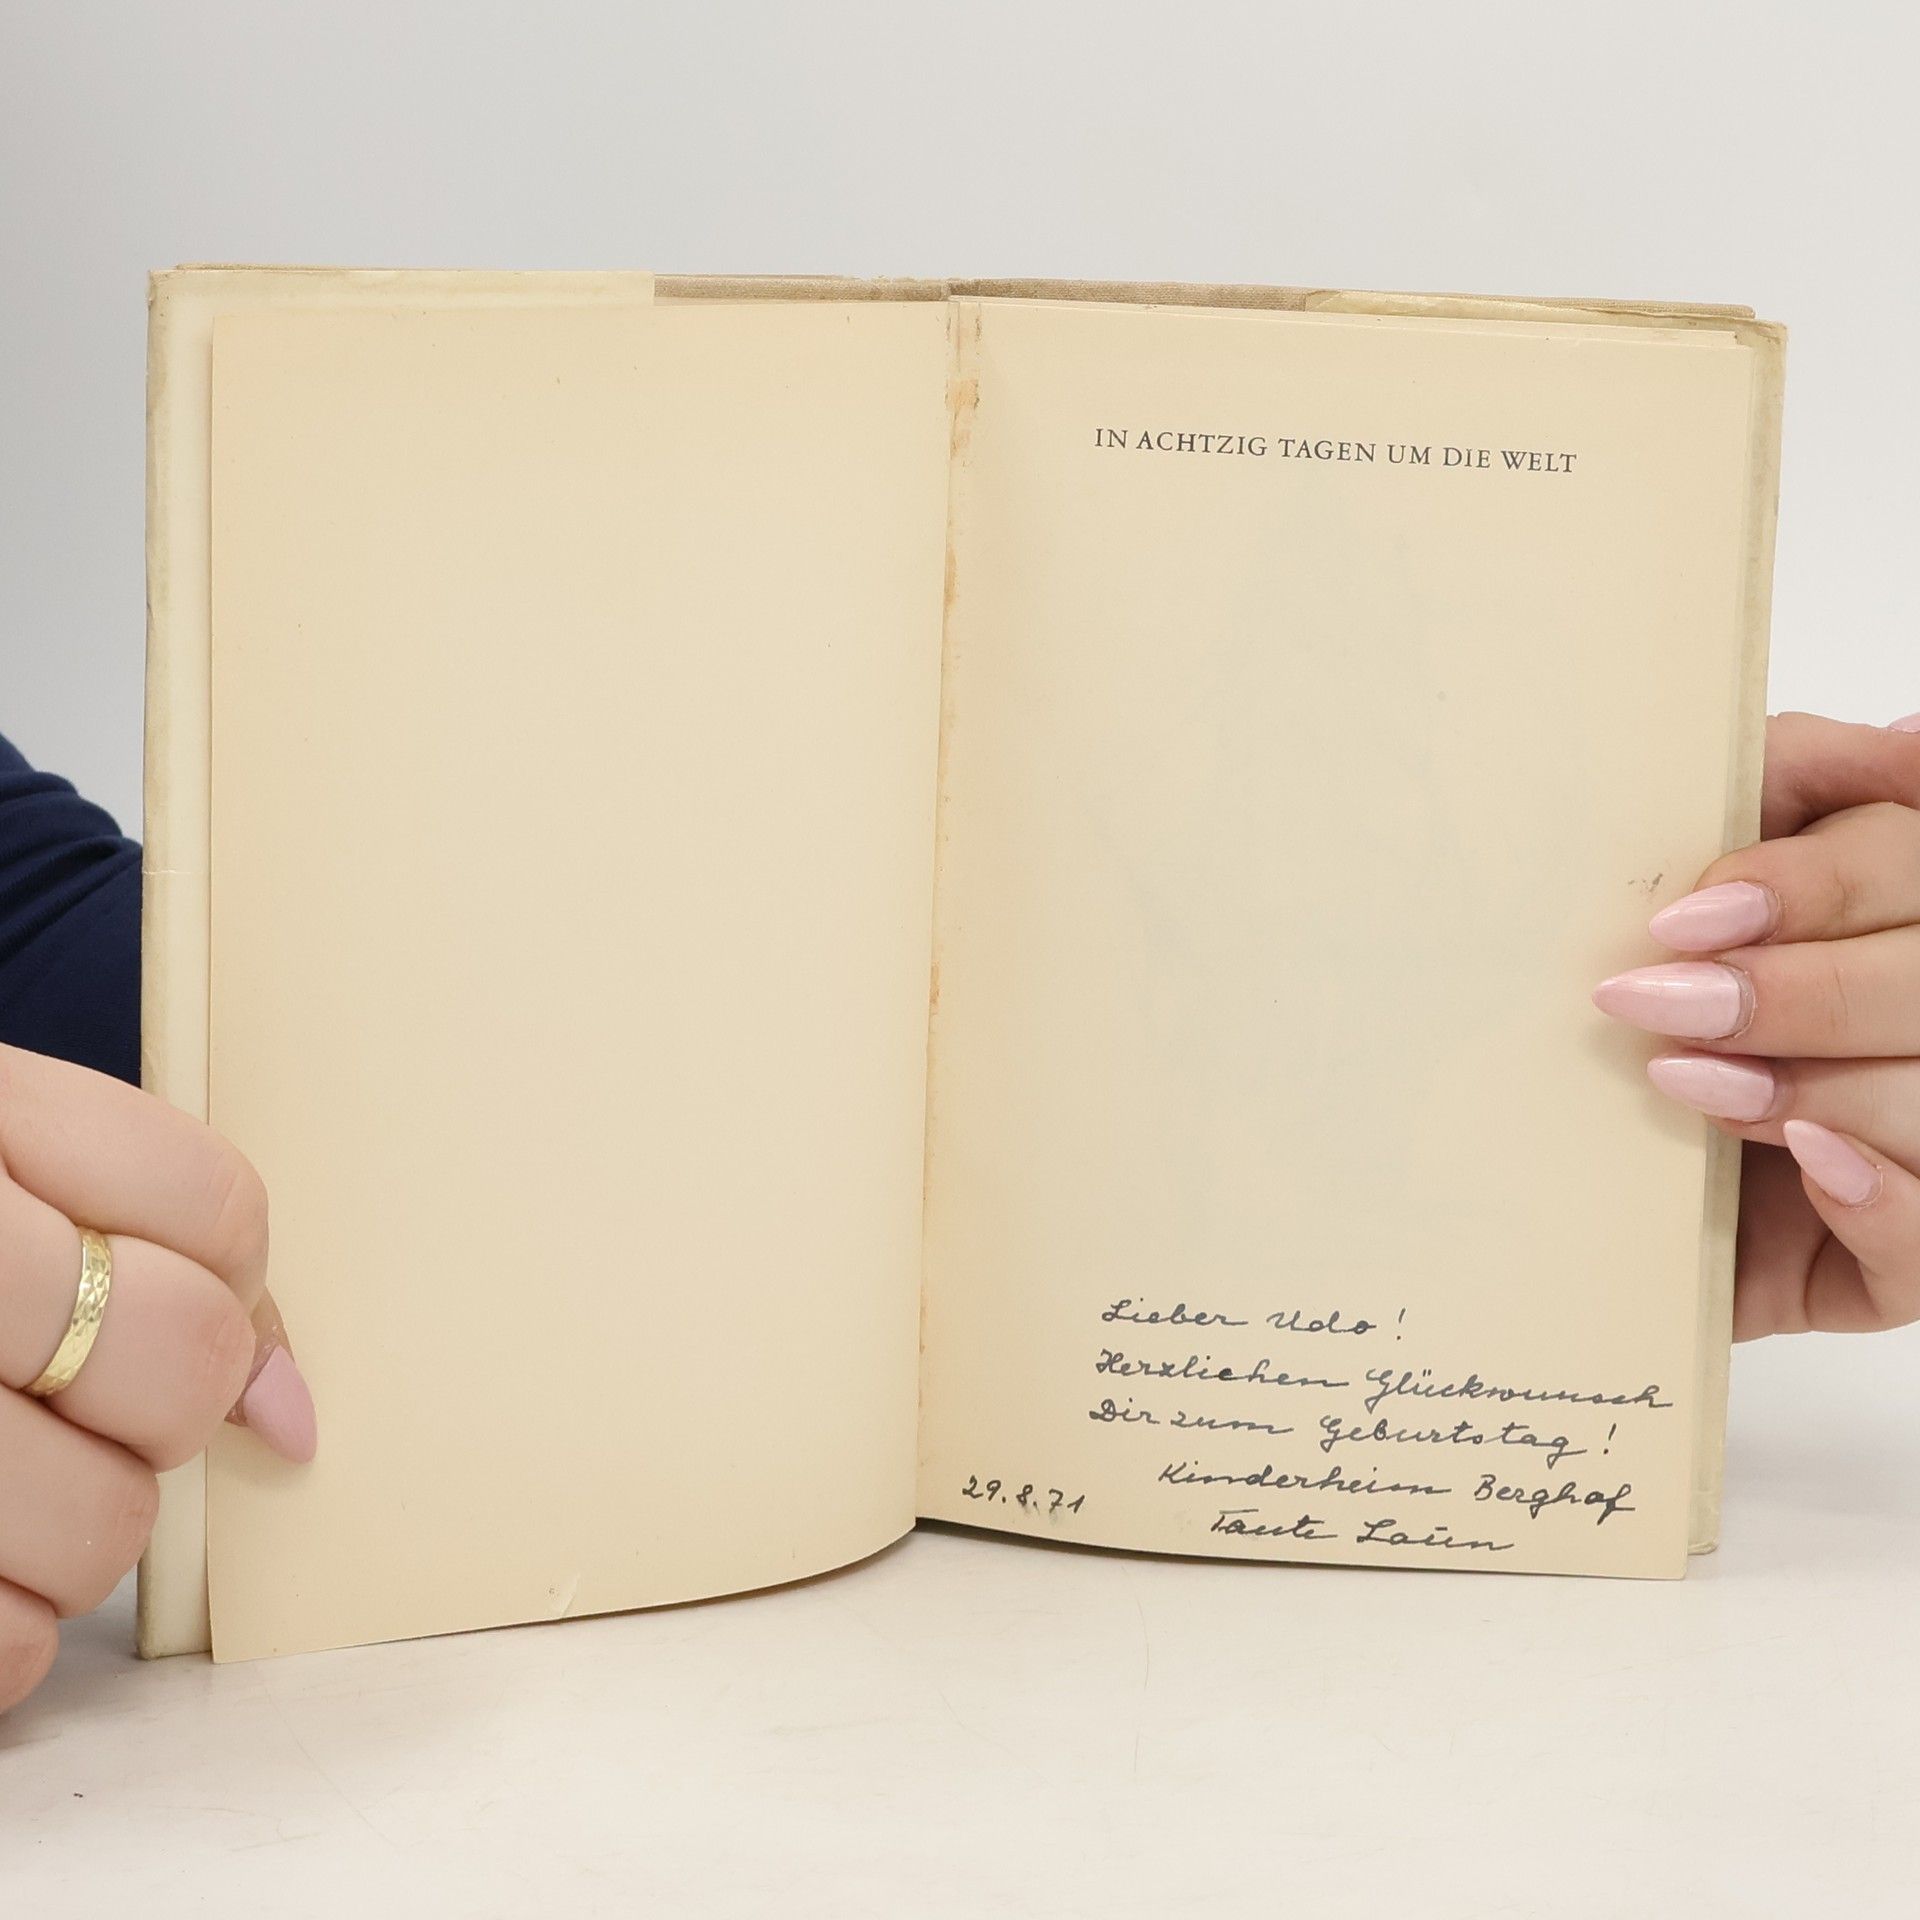 IN ACHTZIG TAGEN UM DIE WELT
Lieber Udo!
Herzlichen Glückwunsch
Dir zum Geburtstag!
Kinderheim Berghof
29.8.71
Tante